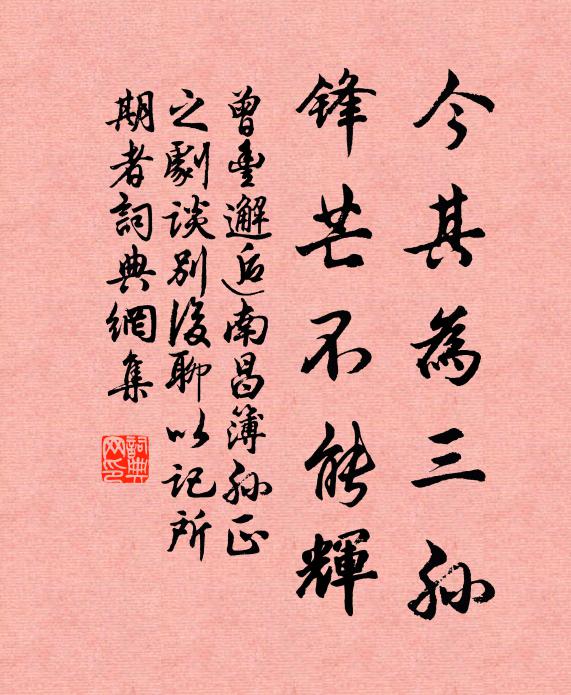 今其為三孙
锋芒不能輝
曾豊邂逅南昌簿孙正
之劇谈别後聊以记所
期者詞典網集
詞典网印